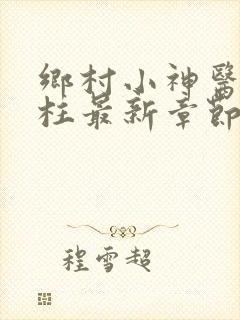 鄉村小神醫
柱最新章節
程雪超